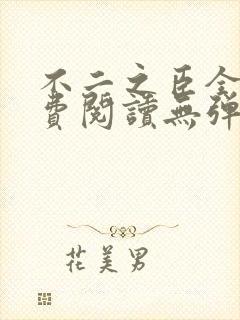 不二之臣全
費閱讀無彈
花美男